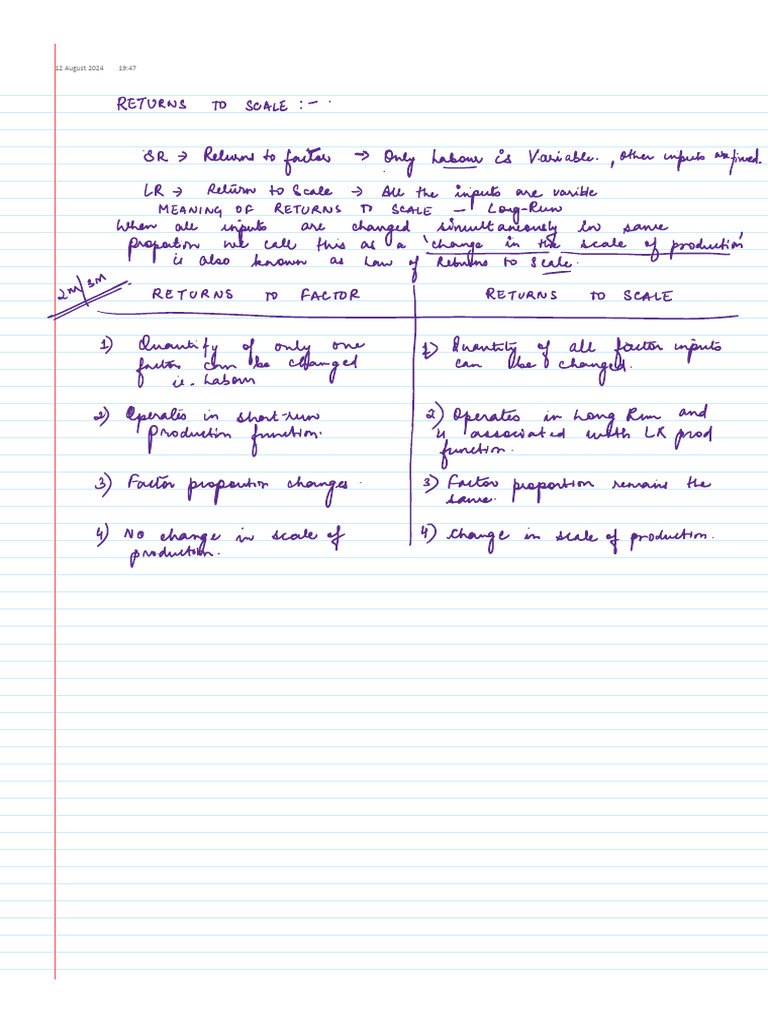 12 August 2024 19:47
RETURNS TO SCALE :-
SR → Returns to factor → Only Labour is Variable. , other inputs are fixed.
LR → Return to Scale → All the inputs are varible
MEANING OF RETURNS TO SCALE - Long-Run
When all inputs are changed simultaneously in same
propotion we call this as a 'change in the scale of production'
is also known as Law of Returns to Scale.
2M/3M RETURNS TO FACTOR RETURNS TO SCALE
1) Quantity of only one
factor can be changed
i.e. Labour
1) Quantity of all factor inputs
can be changed.
2) Operates in short-run
Production function.
2) Operates in Long Run and
is associated with LR prod
function.
3) Factor propoution changes.
3) Factor proportion remains the
same.
4) No change in scale of
production.
4) Change in scale of production.